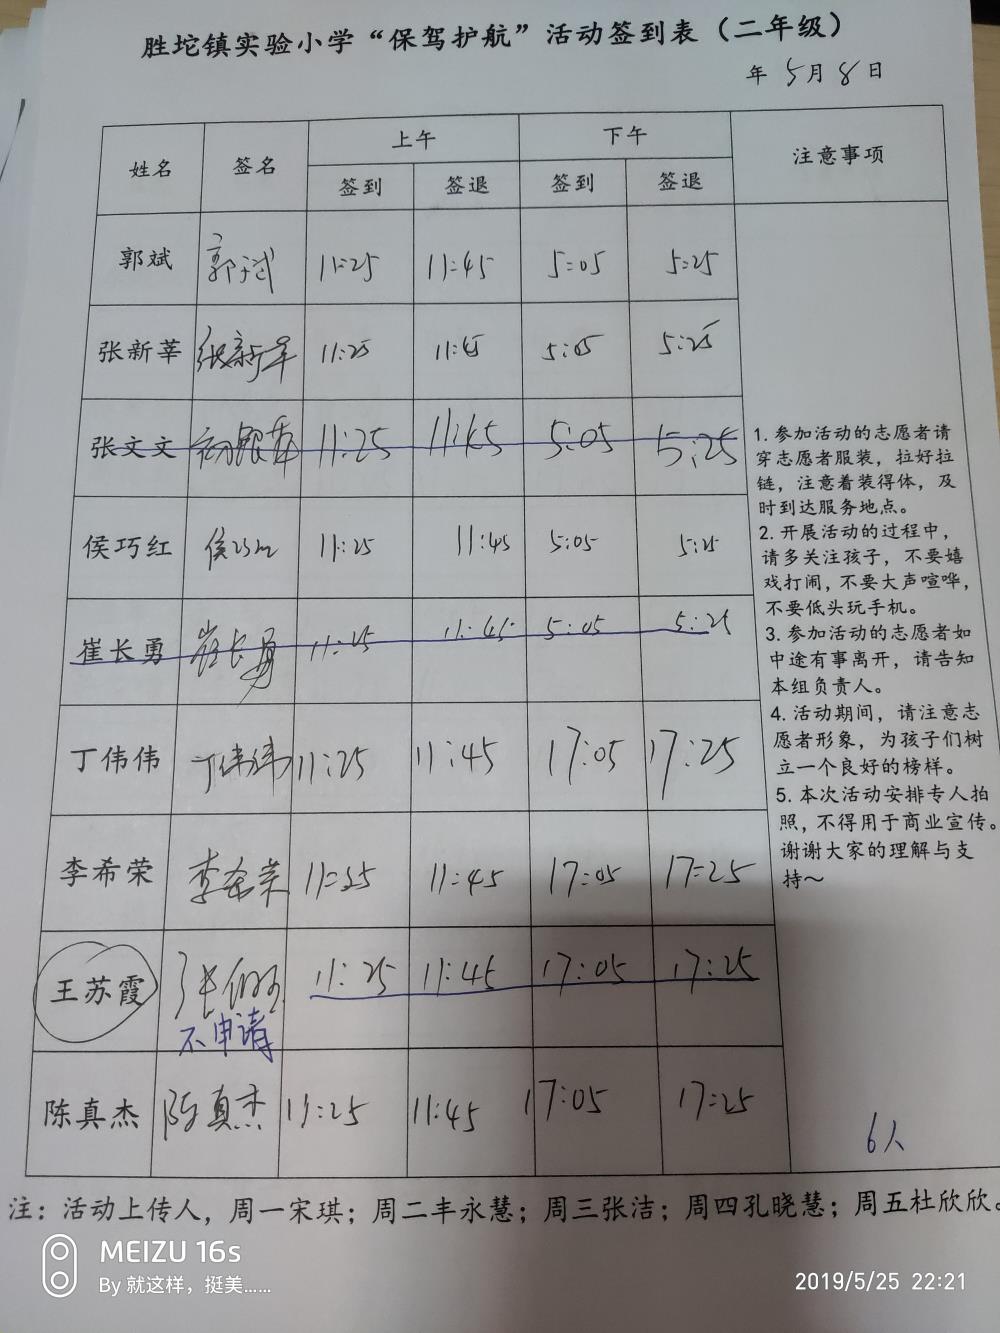 胜坨镇实验小学“保驾护航”活动签到表（二年级）
年 5月 8日
姓名 签名 上午 下午 注意事项
签到 签退 签到 签退
郭斌 郭斌 11:25 11:45 5:05 5:25
张新莘 张新莘 11:25 11:45 5:05 5:25
张文文 11:25 11:45 5:05 5:25
侯巧红 侯巧红 11:25 11:45 5:05 5:25
崔长勇 崔长勇 11:25 11:45 5:05 5:25
丁伟伟 丁伟伟 11:25 11:45 17:05 17:25
李希荣 李希荣 11:25 11:45 17:05 17:25
王苏霞 11:25 11:45 17:05 17:25
不申请
陈真杰 陈真杰 11:25 11:45 17:05 17:25
1. 参加活动的志愿者请
穿志愿者服装，拉好拉
链，注意着装得体，及
时到达服务地点。
2. 开展活动的过程中，
请多关注孩子，不要嬉
戏打闹，不要大声喧哗，
不要低头玩手机。
3. 参加活动的志愿者如
中途有事离开，请告知
本组负责人。
4. 活动期间，请注意志
愿者形象，为孩子们树
立一个良好的榜样。
5. 本次活动安排专人拍
照，不得用于商业宣传。
谢谢大家的理解与支
持～
6人
注：活动上传人，周一宋琪；周二丰永慧；周三张洁；周四孔晓慧；周五杜欣欣。
MEIZU 16s
By 就这样，挺美……
2019/5/25 22:21